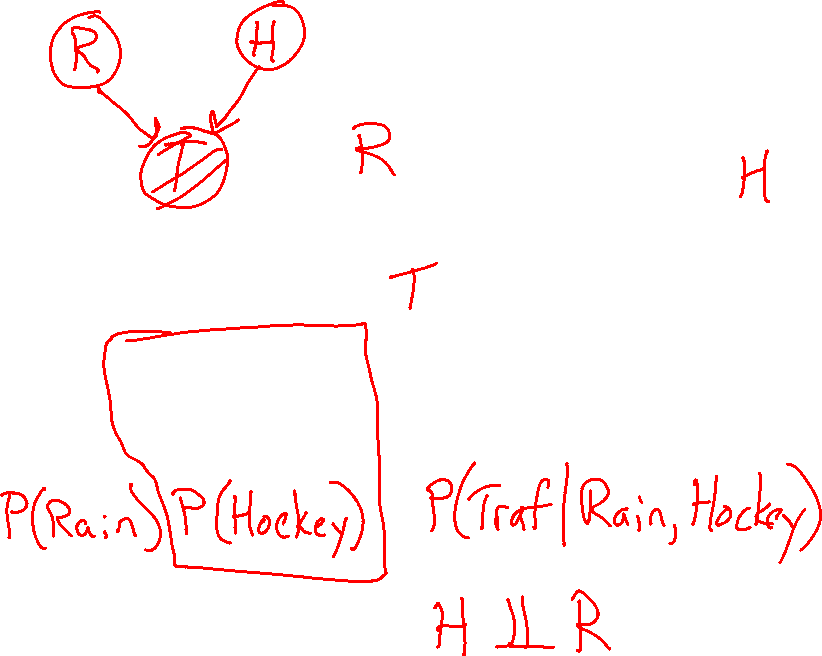 R H
T
R
H
T
P(Rain) P(Hockey) P(Traf|Rain, Hockey)
H ⫫ R